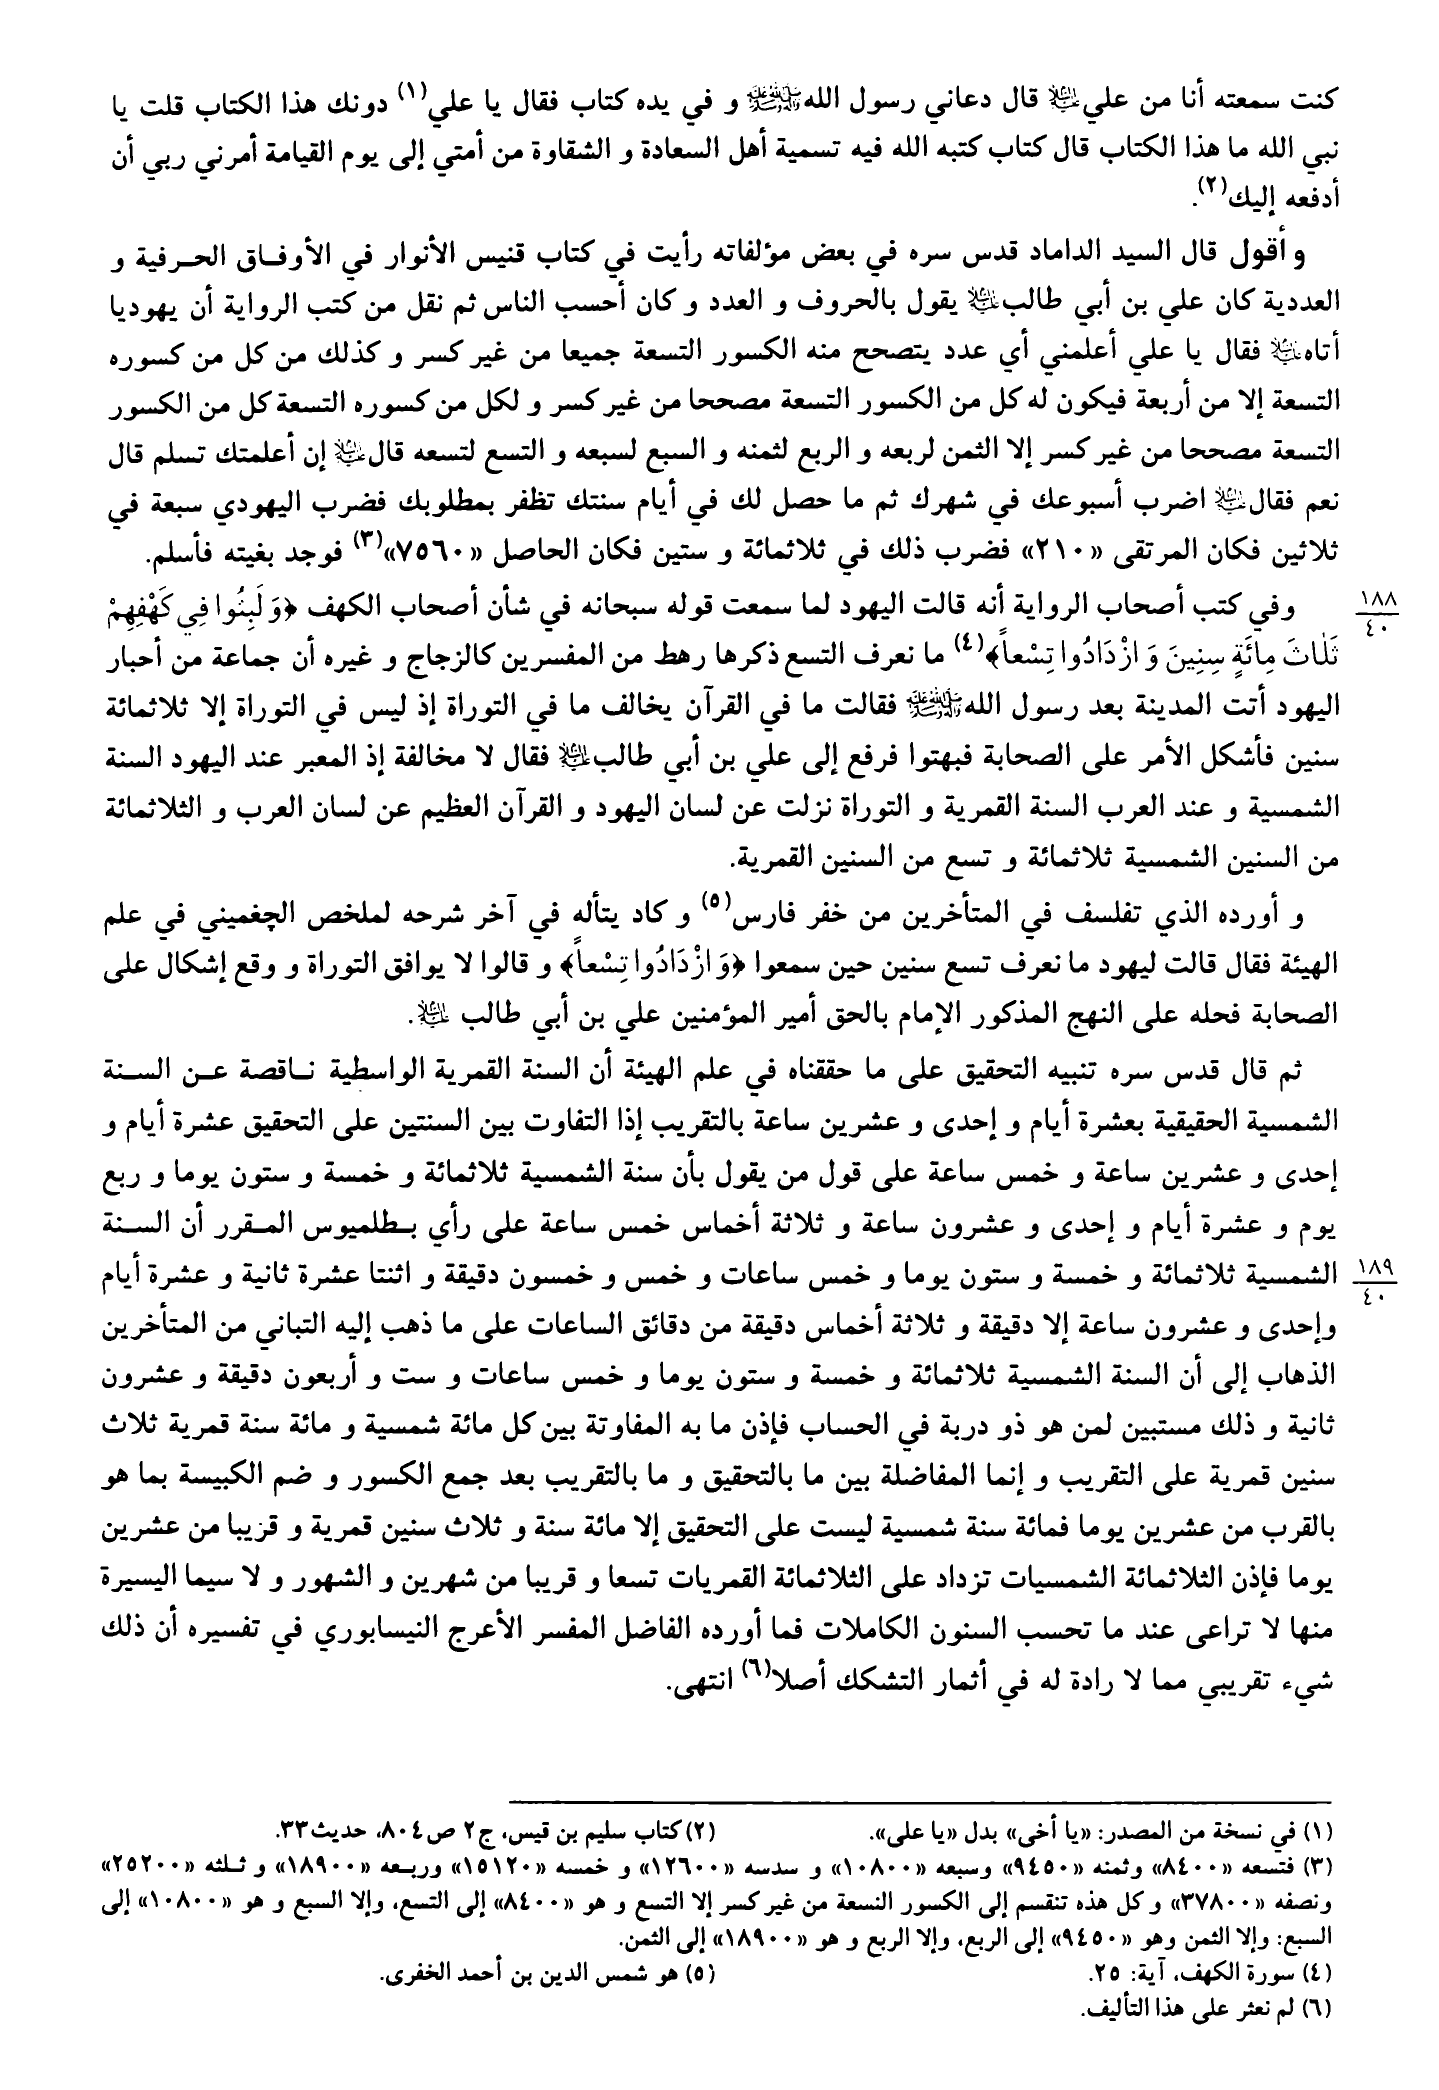 كنت سمعته أنا من علي عليه السلام قال دعاني رسول الله صلى الله عليه وآله وسلم و في يده كتاب فقال يا علي(١) دونك هذا الكتاب قلت يا
نبي الله ما هذا الكتاب قال كتاب كتبه الله فيه تسمية أهل السعادة و الشقاوة من أمتي إلى يوم القيامة أمرني ربي أن
أدفعه إليك(٢).
و أقول قال السيد الداماد قدس سره في بعض مؤلفاته رأيت في كتاب قنيس الأنوار في الأوفـاق الحـرفية و
العددية كان علي بن أبي طالب عليه السلام يقول بالحروف و العدد و كان أحسب الناس ثم نقل من كتب الرواية أن يهوديا
أتاه عليه السلام فقال يا علي أعلمني أي عدد يتصحح منه الكسور التسعة جميعا من غير كسر و كذلك من كل من كسوره
التسعة إلا من أربعة فيكون له كل من الكسور التسعة مصححا من غير كسر و لكل من كسوره التسعة كل من الكسور
التسعة مصححا من غير كسر إلا الثمن لربعه و الربع لثمنه و السبع لسبعه و التسع لتسعه قال عليه السلام إن أعلمتك تسلم قال
نعم فقال عليه السلام اضرب أسبوعك في شهرك ثم ما حصل لك في أيام سنتك تظفر بمطلوبك فضرب اليهودي سبعة في
ثلاثين فكان المرتقى «٢١٠» فضرب ذلك في ثلاثمائة و ستين فكان الحاصل «٧٥٦٠»(٣) فوجد بغيته فأسلم.
وفي كتب أصحاب الرواية أنه قالت اليهود لما سمعت قوله سبحانه في شأن أصحاب الكهف ﴿وَ لَبِثُوا فِي كَهْفِهِمْ
ثَلٰاثَ مِائَةٍ سِنِينَ وَ ازْدَادُوا تِسْعاً﴾(٤) ما نعرف التسع ذكرها رهط من المفسرين كالزجاج و غيره أن جماعة من أحبار
اليهود أتت المدينة بعد رسول الله صلى الله عليه وآله وسلم فقالت ما في القرآن يخالف ما في التوراة إذ ليس في التوراة إلا ثلاثمائة
سنين فأشكل الأمر على الصحابة فبهتوا فرفع إلى علي بن أبي طالب عليه السلام فقال لا مخالفة إذ المعبر عند اليهود السنة
الشمسية و عند العرب السنة القمرية و التوراة نزلت عن لسان اليهود و القرآن العظيم عن لسان العرب و الثلاثمائة
من السنين الشمسية ثلاثمائة و تسع من السنين القمرية.
١٨٨
٤٠
و أورده الذي تفلسف في المتأخرين من خفر فارس(٥) و كاد يتأله في آخر شرحه لملخص الچغميني في علم
الهيئة فقال قالت ليهود ما نعرف تسع سنين حين سمعوا ﴿وَ ازْدَادُوا تِسْعاً﴾ و قالوا لا يوافق التوراة و وقع إشكال على
الصحابة فحله على النهج المذكور الإمام بالحق أمير المؤمنين علي بن أبي طالب عليه السلام.
ثم قال قدس سره تنبيه التحقيق على ما حققناه في علم الهيئة أن السنة القمرية الواسطية نـاقصة عـن السـنة
الشمسية الحقيقية بعشرة أيام و إحدى و عشرين ساعة بالتقريب إذا التفاوت بين السنتين على التحقيق عشرة أيام و
إحدى و عشرين ساعة و خمس ساعة على قول من يقول بأن سنة الشمسية ثلاثمائة و خمسة و ستون يوما و ربع
يوم و عشرة أيام و إحدى و عشرون ساعة و ثلاثة أخماس خمس ساعة على رأي بـطلميوس المـقرر أن السـنة
الشمسية ثلاثمائة و خمسة و ستون يوما و خمس ساعات و خمس و خمسون دقيقة و اثنتا عشرة ثانية و عشرة أيام
وإحدى و عشرون ساعة إلا دقيقة و ثلاثة أخماس دقيقة من دقائق الساعات على ما ذهب إليه التباني من المتأخرين
الذهاب إلى أن السنة الشمسية ثلاثمائة و خمسة و ستون يوما و خمس ساعات و ست و أربعون دقيقة و عشرون
ثانية و ذلك مستبين لمن هو ذو دربة في الحساب فإذن ما به المفاوتة بين كل مائة شمسية و مائة سنة قمرية ثلاث
سنين قمرية على التقريب و إنما المفاضلة بين ما بالتحقيق و ما بالتقريب بعد جمع الكسور و ضم الكبيسة بما هو
بالقرب من عشرين يوما فمائة سنة شمسية ليست على التحقيق إلا مائة سنة و ثلاث سنين قمرية و قريبا من عشرين
يوما فإذن الثلاثمائة الشمسيات تزداد على الثلاثمائة القمريات تسعا و قريبا من شهرين و الشهور و لا سيما اليسيرة
منها لا تراعى عند ما تحسب السنون الكاملات فما أورده الفاضل المفسر الأعرج النيسابوري في تفسيره أن ذلك
شيء تقريبي مما لا رادة له في أثمار التشكك أصلا(٦) انتهى.
١٨٩
٤٠
(١) في نسخة من المصدر: «يا أخى» بدل «يا على».
(٢) كتاب سليم بن قيس، ج٢ ص٨٠٤، حديث٣٣.
(٣) فتسعه «٨٤٠٠» وثمنه «٩٤٥٠» وسبعه «١٠٨٠٠» و سدسه «١٢٦٠٠» و خمسه «١٥١٢٠» وربـعه «١٨٩٠٠» و ثـلثه «٢٥٢٠٠»
ونصفه «٣٧٨٠٠» و كل هذه تنقسم إلى الكسور النسعة من غير كسر إلا التسع و هو «٨٤٠٠» إلى التسع، وإلا السبع و هو «١٠٨٠٠» إلى
السبع: وإلا الثمن وهو «٩٤٥٠» إلى الربع، وإلا الربع و هو «١٨٩٠٠» إلى الثمن.
(٤) سورة الكهف، آية: ٢٥.
(٥) هو شمس الدين بن أحمد الخفرى.
(٦) لم نعثر على هذا التأليف.